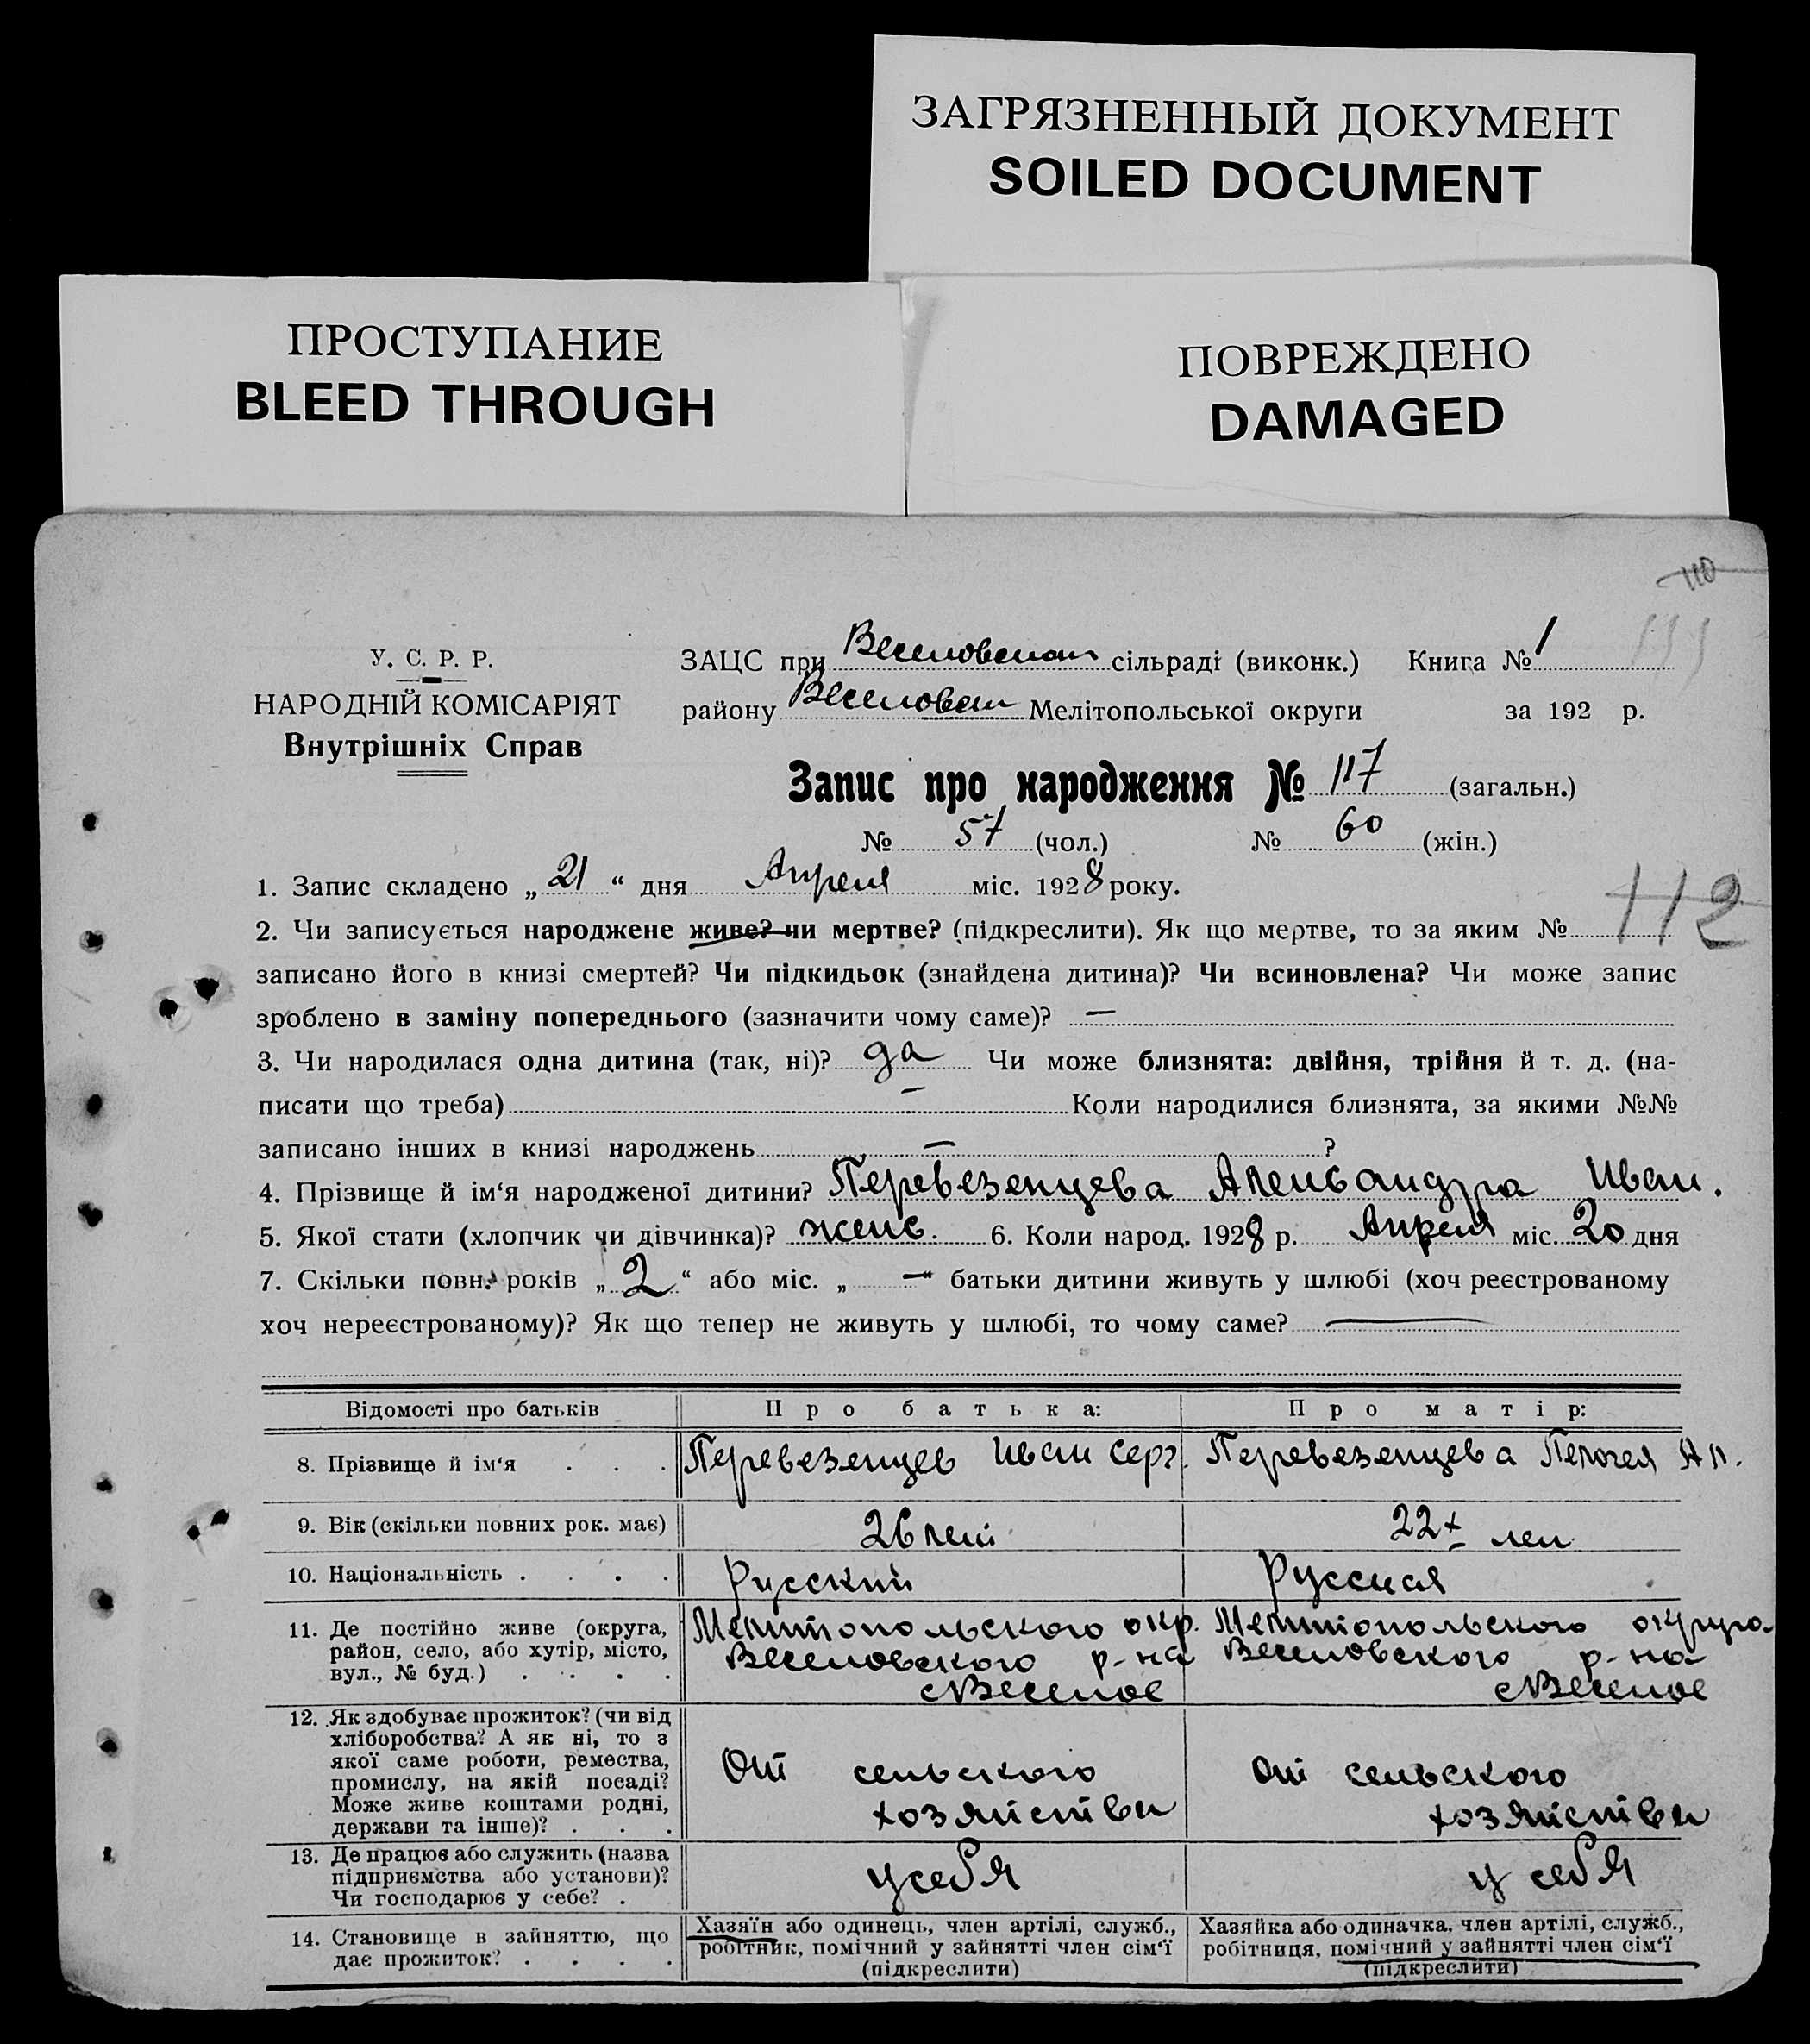 ЗАГРЯЗНЕННЫЙ ДОКУМЕНТ
SOILED DOCUMENT
ПРОСТУПАНИЕ
BLEED THROUGH
ПОВРЕЖДЕНО
DAMAGED
110
У. С. Р. Р.
НАРОДНІЙ КОМІСАРІЯТ
Внутрішніх Справ
ЗАЦС при Веселовском сільраді (виконк.) Книга № 1 111
району Веселовск Мелітопольської округи за 192 р.
Запис про народження № 117 (загальн.)
№ 57 (чол.) № 60 (жін.)
1. Запис складено „21“ дня Апреля міс. 1928 року.
112
2. Чи записується народжене живе? чи мертве? (підкреслити). Як що мертве, то за яким №
записано його в книзі смертей? Чи підкидьок (знайдена дитина)? Чи всиновлена? Чи може запис
зроблено в заміну попереднього (зазначити чому саме)? —
3. Чи народилася одна дитина (так, ні)? да Чи може близнята: двійня, трійня й т. д. (на-
писати що треба) — Коли народилися близнята, за якими №№
записано інших в книзі народжень — ?
4. Прізвище й ім‘я народженої дитини? Перевезенцева Александра Иван.
5. Якої стати (хлопчик чи дівчинка)? женс. 6. Коли народ. 1928 р. Апреля міс. 20 дня
7. Скільки повн. років „2“ або міс. „—“ батьки дитини живуть у шлюбі (хоч реєстрованому
хоч нереєстрованому)? Як що тепер не живуть у шлюбі, то чому саме? —
Відомості про батьків
Про батька:
Про матір:
8. Прізвище й ім‘я . . .
Перевезенцев Иван Серг.
Перевезенцева Пелагея
9. Вік (скільки повних рок. має)
26 лет
22 лет
10. Національність . . . .
Русский
Русская
11. Де постійно живе (округа,
район, село, або хутір, місто,
вул., № буд.) . . . .
Мелитопольского окр.
Веселовского р-на
с Веселое
Мелитопольского округа
Веселовского р-на
с Веселое
12. Як здобуває прожиток? (чи від
хліборобства? А як ні, то з
якої саме роботи, ремества,
промислу, на якій посаді?
Може живе коштами родні,
держави та інше)? . . .
От сельского
хозяйства
от сельского
хозяйства
13. Де працює або служить (назва
підприємства або установи)?
Чи господарює у себе? .
у себя
у себя
14. Становище в зайняттю, що
дає прожиток? . . . .
Хазяїн або одинець, член артілі, служб.,
робітник, помічний у зайнятті член сім‘ї
(підкреслити)
Хазяйка або одиначка, член артілі, служб.,
робітниця, помічний у зайнятті член сім‘ї
(підкреслити)